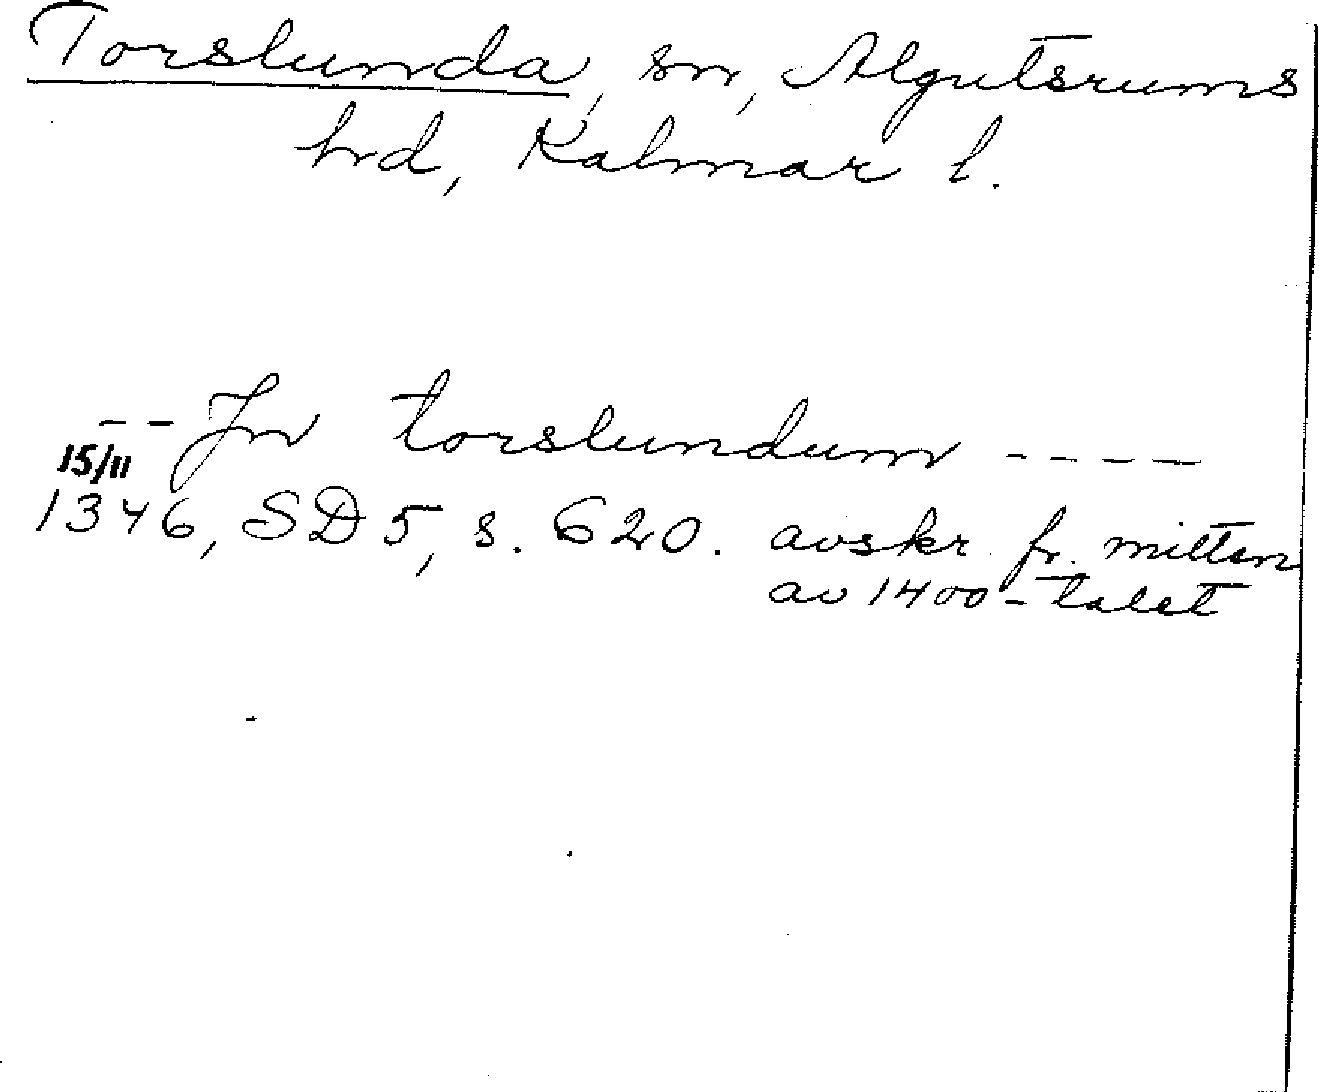 Torslunda, sn, Algutsrums
hd, Kalmar l.
-- Jn torslundum ----
15/11
1346, SD 5, s. 620. avskr. fr. mitten
av 1400-talet